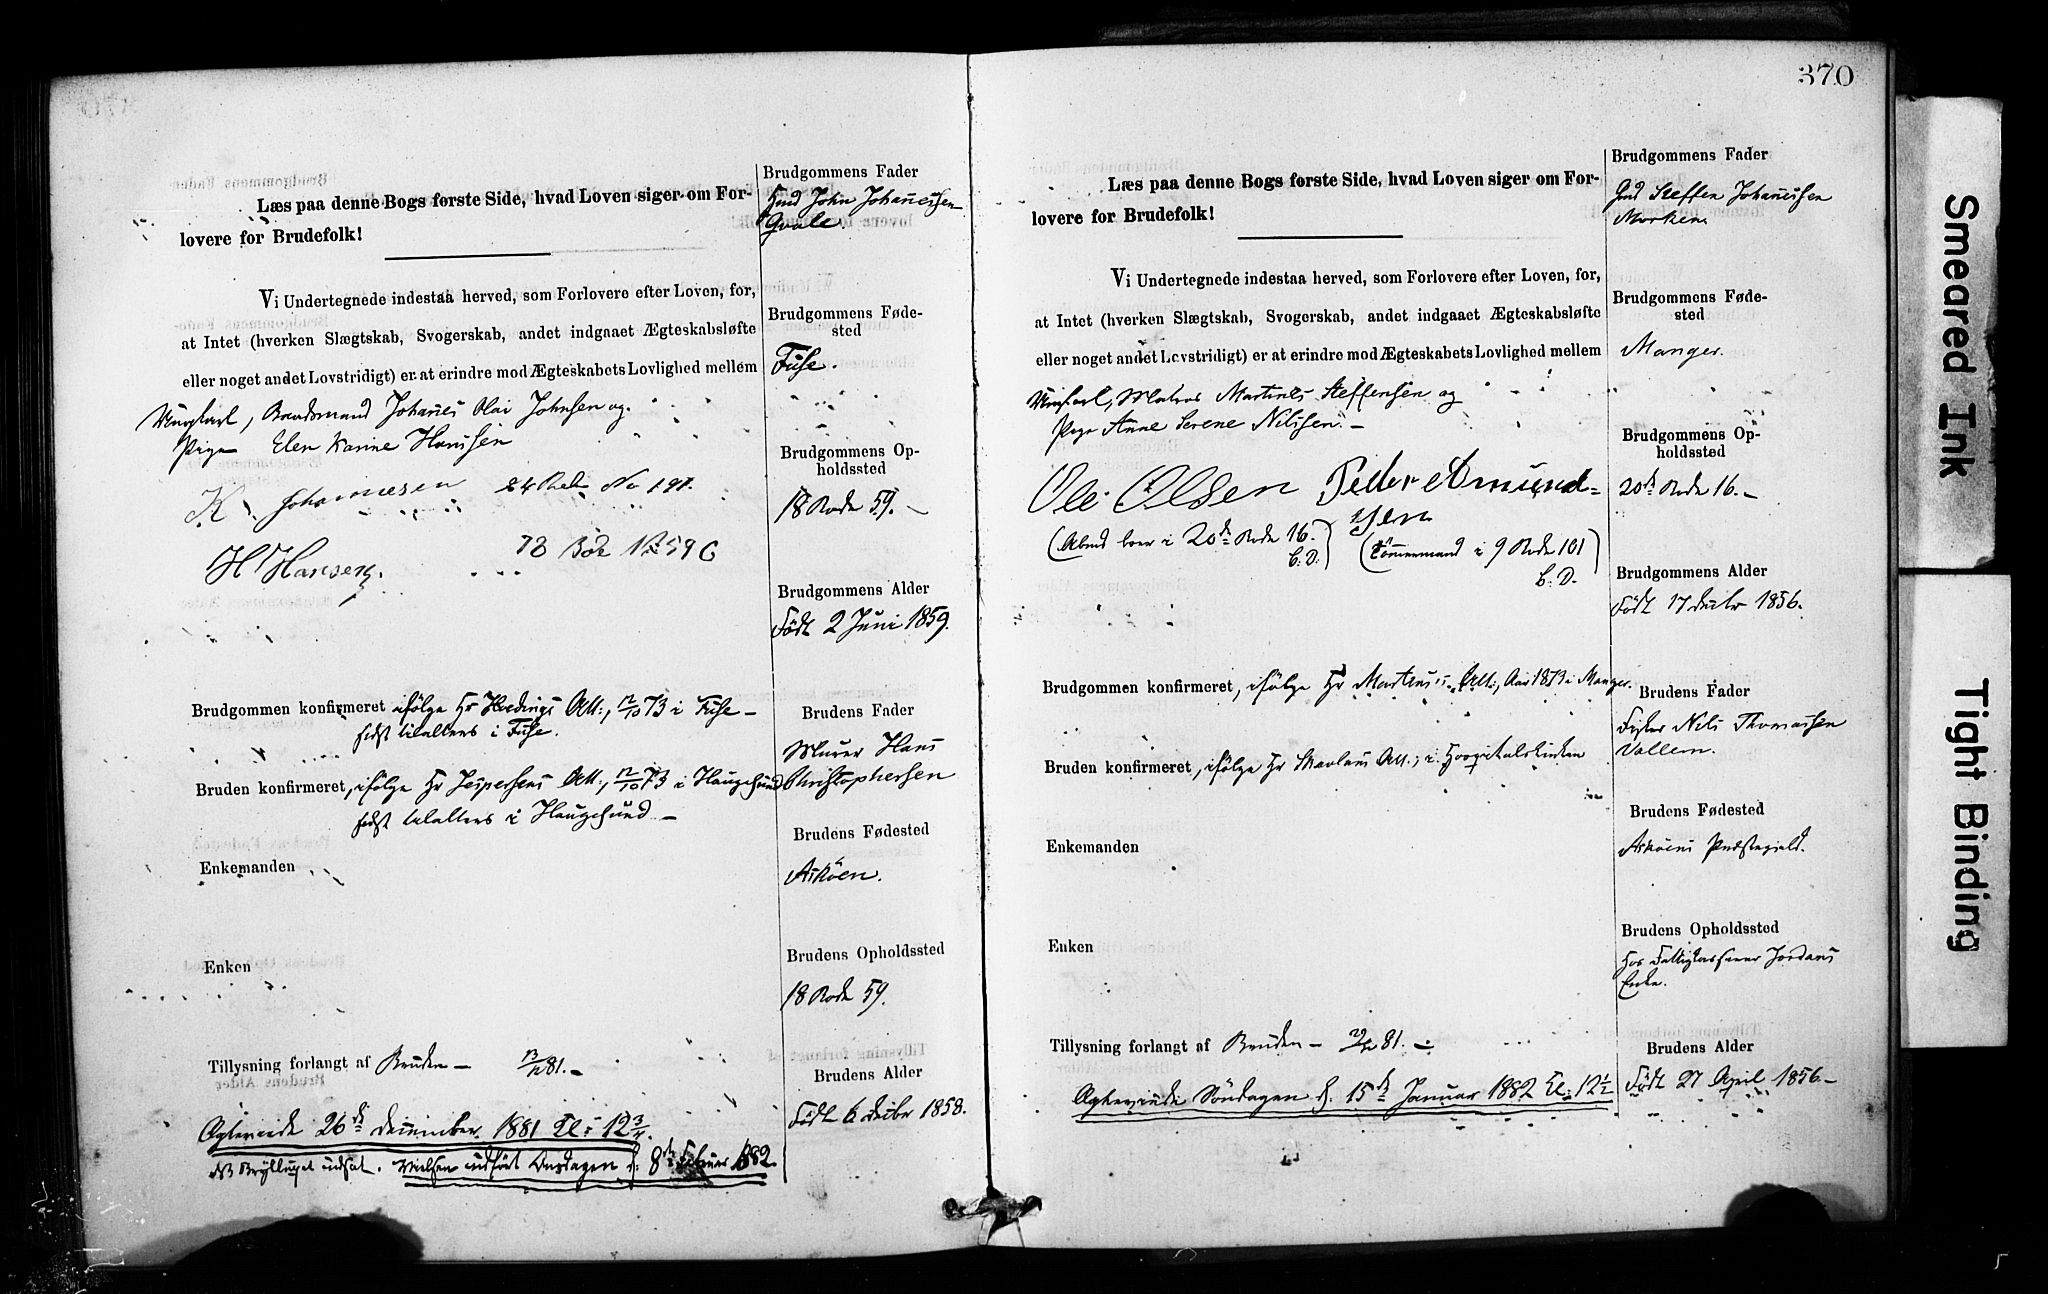 Læs paa denne Bogs første Side, hvad Loven siger om For-
lovere for Brudefolk!
Vi Undertegnede indestaa herved, som Forlovere efter Loven, for,
at Intet (hverken Slægtskab, Svogerskab, andet indgaaet Ægteskabsløfte
eller noget andet Lovstridigt) er at erindre mod Ægteskabets Lovlighed mellem
Ungkarl, Johannes Olai Johnsen og
Pige Elen Karine Hansen
K. Johannesen 24 Rode No 191.
H Hansen. 18 Rode No 59 C
Brudgommen konfirmeret ifølge Hr Hedings Att:, 12/10 73 i Fuse –
sidst til alters i Fuse.
Bruden konfirmeret, ifølge Hr Jespersens Att:, 12/10 73 i Haugesund
sidst til alters i Haugesund –
Enkemanden
Enken
Tillysning forlangt af Bruden – 13/12 81. –
Agtevirede 26de December 1881 Kl: 12 3/4.
Brylluppet udsat. Vielsen udført Onsdagen d: 8de Februar 1882.
Brudgommens Fader
Gmd John Johannessen
Gvale.
Brudgommens Føde-
sted
Fuse.
Brudgommens Op-
holdssted
18 Rode 59. –
Brudgommens Alder
Født 2 Juni 1859.
Brudens Fader
Murer Hans
Christophersen
Brudens Fødested
Askøen.
Brudens Opholdssted
18 Rode 59.
Brudens Alder
Født 6 Decbr 1858.
370
Læs paa denne Bogs første Side, hvad Loven siger om For-
lovere for Brudefolk!
Vi Undertegnede indestaa herved, som Forlovere efter Loven, for,
at Intet (hverken Slægtskab, Svogerskab, andet indgaaet Ægteskabsløfte
eller noget andet Lovstridigt) er at erindre mod Ægteskabets Lovlighed mellem
Ungkarl, Matros Martines Steffensen og
Pige Anne Serene Nilssen. –
Ole Olsen Peder Amund=
sen
(Arbmd boer i 20de Rode 16. (Tömmermand i 9 Rode 101
b: D.) b: D.)
Brudgommen konfirmeret, ifølge Hr Martens's Att:, Aar 1873 i Manger.
Bruden konfirmeret, ifølge Hr Skavlans Att:, i Hospitalskirken
Enkemanden
Enken
Tillysning forlangt af Bruden – 29/12 81. –
Agtevirede Söndagen d. 15de Januar 1882 Kl: 12 1/2
Brudgommens Fader
Gmd Steffen Johannessen
Morken
Brudgommens Føde-
sted
Manger.
Brudgommens Op-
holdssted
20de Rode 16. –
Brudgommens Alder
Født 17 Decbr 1856.
Brudens Fader
Fisker Nils Thomassen
Vallem.
Brudens Fødested
Askøens Præstegield.
Brudens Opholdssted
Hos Jordans
Enke.
Brudens Alder
Født 27 April 1856 –
Smeared Ink
Tight Binding